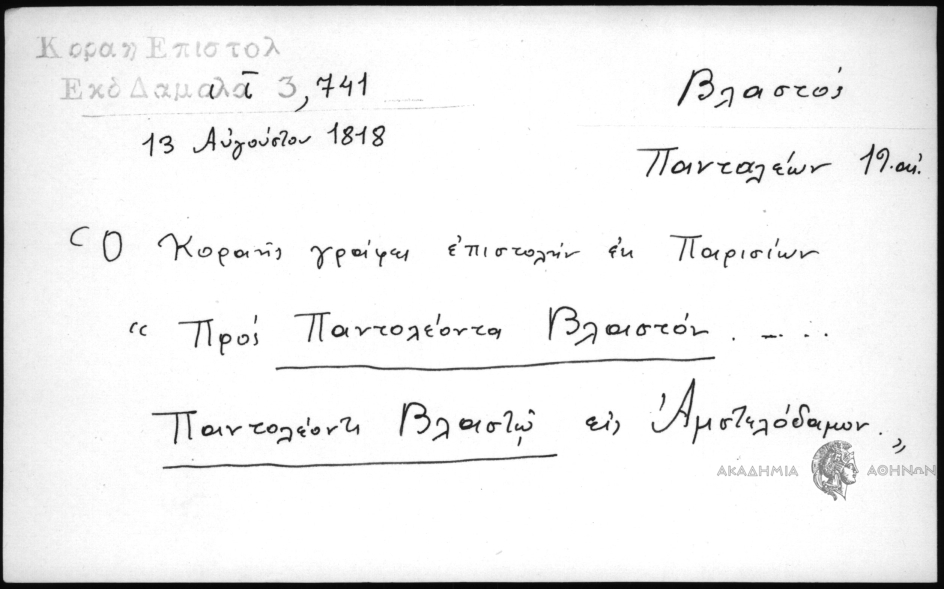 Κοραη Επιστολ
Εκδ Δαμαλα α 3,741
13 Αὐγούστου 1818
Βλαστός
Πανταλέων 19. αἰ.
Ὁ Κοραῆς γράφει ἐπιστολήν ἐκ Παρισίων
“ Πρός Παντολέοντα Βλαστόν . – . .
Παντολέοντι Βλαστῷ εἰς Ἀμστελόδαμον. „
ΑΚΑΔΗΜΙΑ ΑΘΗΝΩΝ